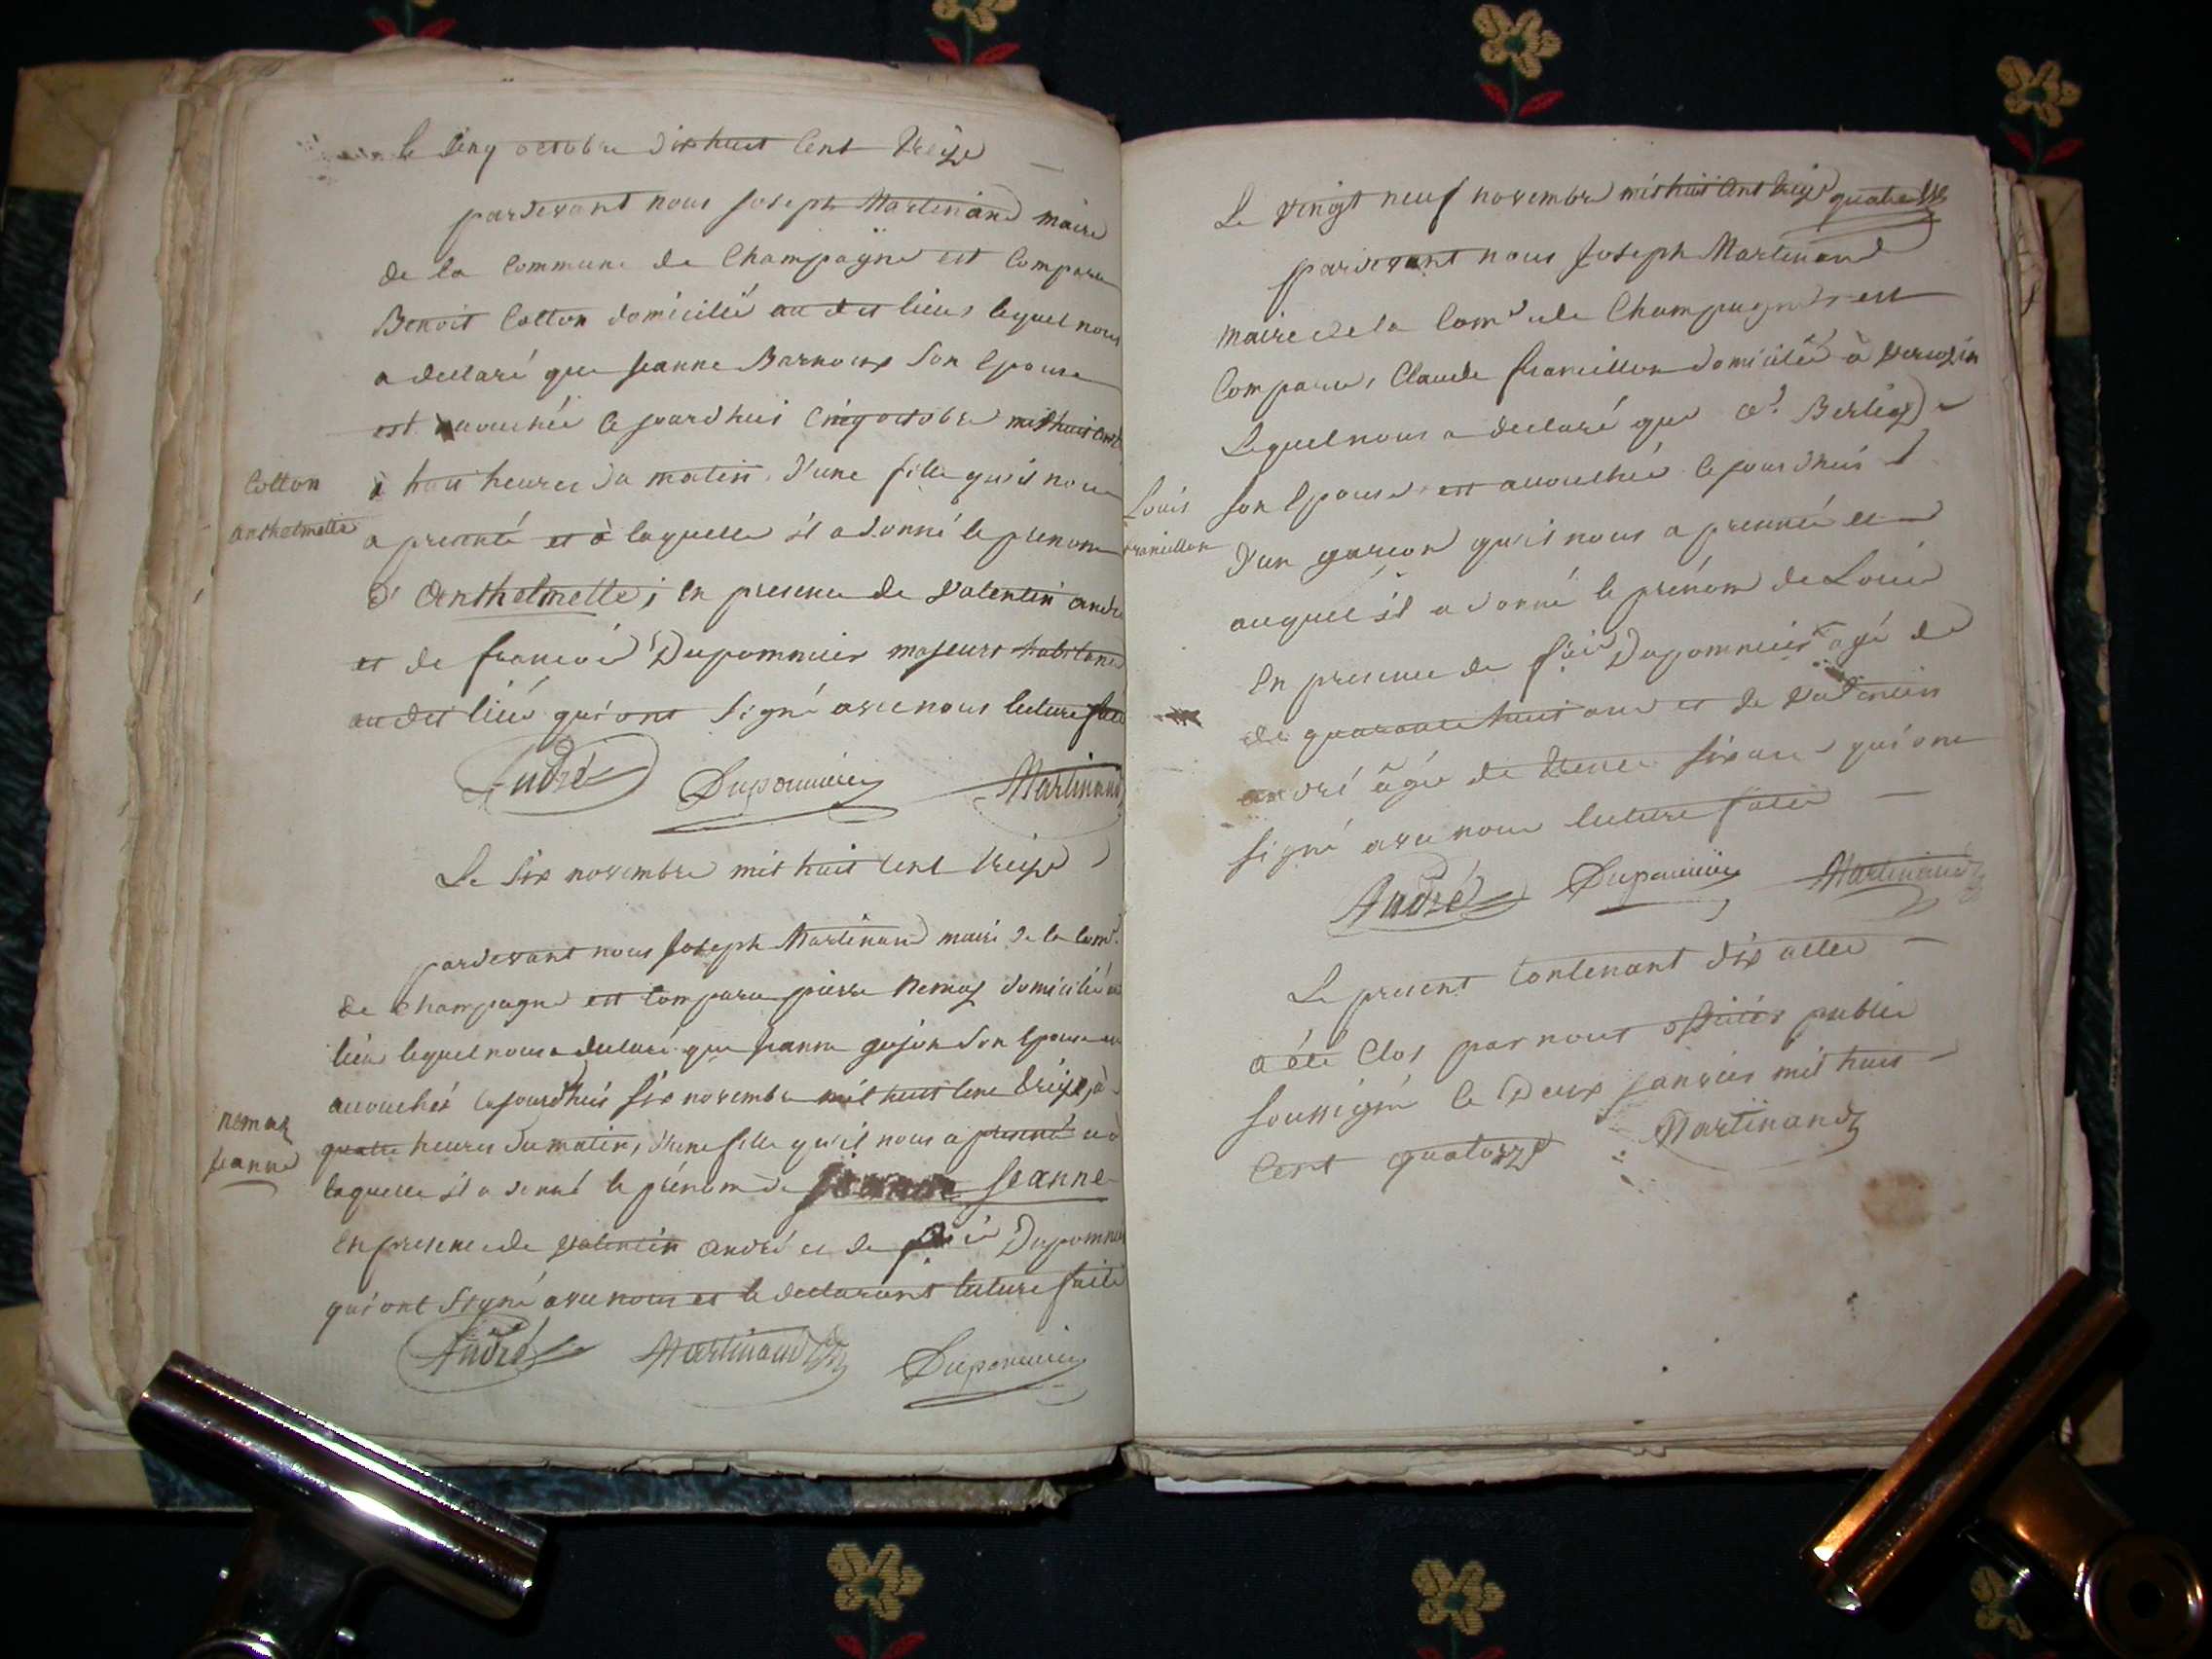 le Cinq octobre dix huit Cent treize
pardevant nous joseph Martinand maire
de la Commune de Champagne est Comparu
Benoit Cotton domicilié au dit lieu, lequel nous
a declaré que jeanne Barnoux Son Epouse
est accouchée Cejourdhui Cinq octobre mil huit Cent
à huit heures du matin, d'une fille qu'il nous
a presenté et à laquelle il a donné le prenom
d'Anthelmette; en presence de Valentin andré
et de françois Dupommier majeurs habitans
au dit lieu qui ont Signé avec nous lecture faite
Cotton
anthelmette
André Dupommier Martinand
Le Six novembre mil huit Cent treize
pardevant nous joseph Martinand maire de la Comne
de Champagne est Comparu pierre Nemoz domicilié au
lieu lequel nous a declaré que jeanne gojon Son Epouse est
accouchée Cejourdhui Six novembre mil huit Cent treize, à
quatre heures du matin, d'une fille qu'il nous a presenté et à
laquelle il a donné le prénom de jeanne
En presence de Valentin andré et de fçois Dupommier
qui ont Signé avec nous et le declarant lecture faite
nemoz
jeanne
André Martinand Dupommier
Le vingt neuf novembre mil huit Cent treize
pardevant nous Joseph Martinand
Maire de la Comne de Champagne, est
Comparu, Claude francillon domicilié à
Lequel nous a declaré que Berlioz
Son Epouse est accouchée Cejourdhui
d'un garcon qu'il nous a presenté et
auquel il a donné le prénom de Louis
En presence de fçois Dupommier agé de
de quarante huit ans et de Valentin
andré âgé de trente Six ans qui ont
Signé avec nous lecture faite
Louis
francillon
André Dupommier Martinand
Le present Contenant dix actes
a été Clos par nous officier public
Soussigné le Deux janvier mil huit
Cent quatorze Martinand